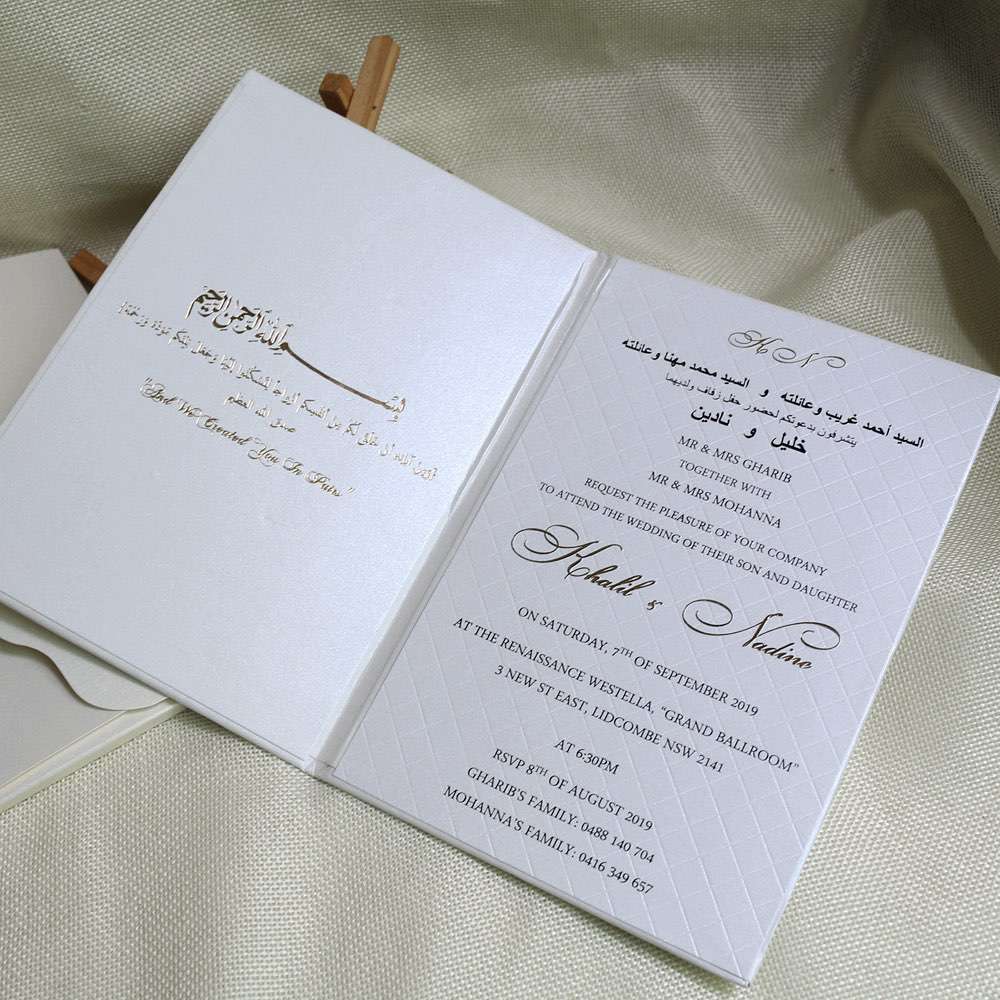 بسم الله الرحمن الرحيم
صدق الله العظيم
"And We Created You In Pairs"
K N
السيد أحمد غريب وعائلته و السيد محمد مهنا وعائلته
يتشرفون بدعوتكم لحضور حفل زفاف ولديهما
خليل و نادين
MR & MRS GHARIB
TOGETHER WITH
MR & MRS MOHANNA
REQUEST THE PLEASURE OF YOUR COMPANY
TO ATTEND THE WEDDING OF THEIR SON AND DAUGHTER
Khalil & Nadine
ON SATURDAY, 7TH OF SEPTEMBER 2019
AT THE RENAISSANCE WESTELLA, "GRAND BALLROOM"
3 NEW ST EAST, LIDCOMBE NSW 2141
AT 6:30PM
RSVP 8TH OF AUGUST 2019
GHARIB'S FAMILY: 0488 140 704
MOHANNA'S FAMILY: 0416 349 657